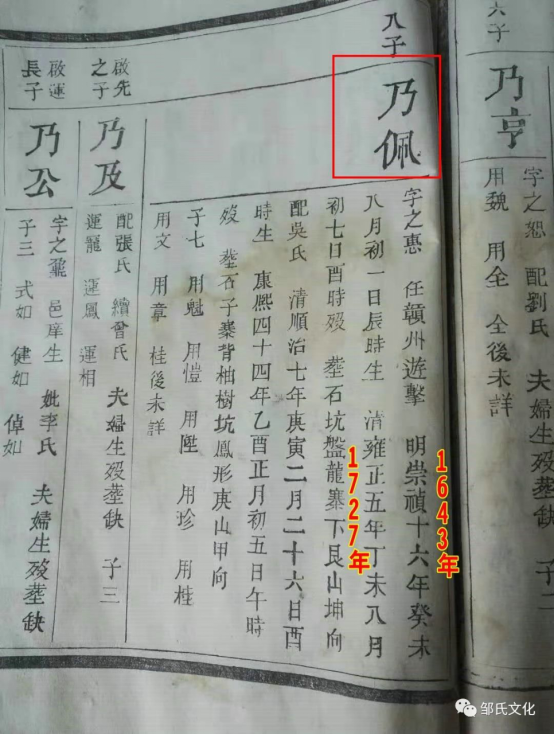 六子
乃亨
字之恕 配劉氏 夫婦生歿塟缺 子二
用魏 用全 全後未詳
八子
乃佩
字之惠 任贛州遊擊 明崇禎十六年癸未
八月初一日辰時生 清雍正五年丁未八月
初七日酉時歿 塟石坑盤龍寨下艮山坤向
配吳氏 清順治七年庚寅二月二十六日酉
時生 康熙四十四年乙酉正月初五日午時
歿 塟石子寨背柚樹坑鳳形庚山甲向
子七 用魁 用愷 用陞 用珍 用桂
用文 用章 桂後未詳
1643年
1727年
啟先
之子
乃及
配張氏 續曾氏 夫婦生歿塟缺 子三
運龍 運鳳 運相
啟運
長子
乃公
字之鼐 邑庠生 妣李氏 夫婦生歿塟缺
子三 式如 健如 倬如
邹氏文化